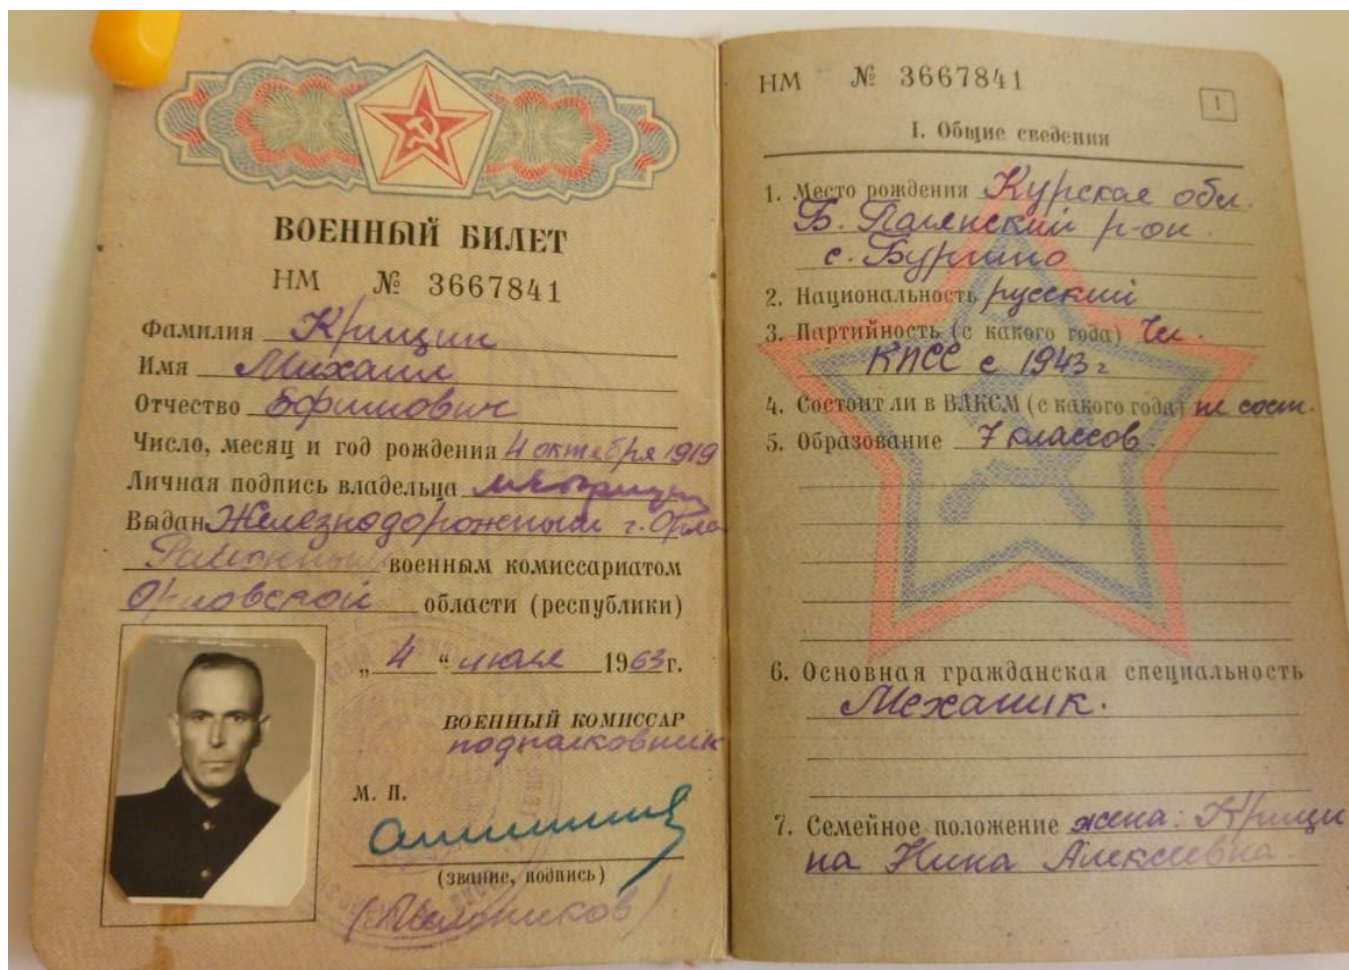 ВОЕННЫЙ БИЛЕТ
НМ № 3667841
Фамилия Крицин
Имя Михаил
Отчество Ефимович
Число, месяц и год рождения 4 октября 1919
Личная подпись владельца
Выдан Железнодорожным г. Орла
Районным военным комиссариатом
Орловской области (республики)
„ 4 “ июля 1963 г.
ВОЕННЫЙ КОМИССАР
подполковник
М. П.
(звание, подпись)
НМ № 3667841
1
I. Общие сведения
1. Место рождения Курская обл.
Б. р-он.
с.
2. Национальность русский
3. Партийность (с какого года) Чл.
КПСС с 1943 г
4. Состоит ли в ВЛКСМ (с какого года) не сост.
5. Образование 7 классов
6. Основная гражданская специальность
Механик.
7. Семейное положение жена: Крици
на Нина Алексеевна.